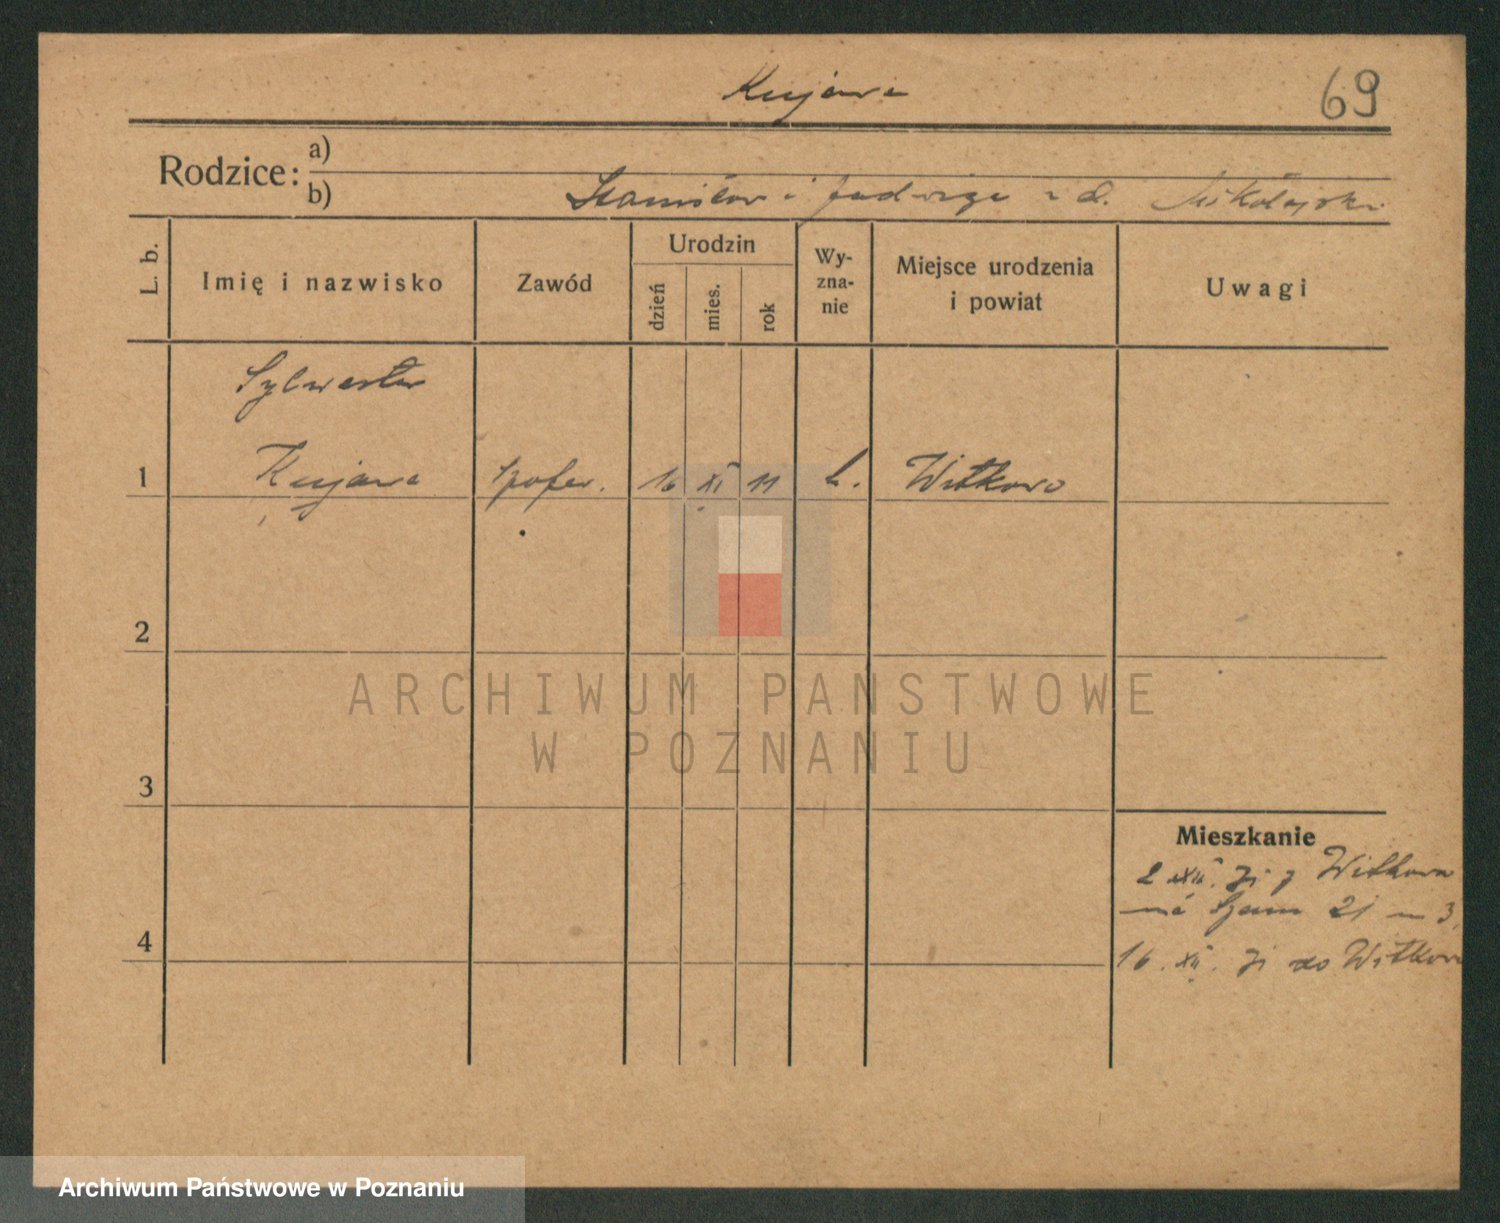 Kujawa
69
Rodzice: a)
b) Stanisław i Jadwiga z d. Mikołajska
L. b.
Imię i nazwisko
Zawód
Urodzin
dzień
mies.
rok
Wy-
zna-
nie
Miejsce urodzenia
i powiat
Uwagi
Sylwester
1 Kujawa szofer. 16 XI 11 k. Witkowo
2
3
4
Mieszkanie
2 XII. 31 z Witkowa
21 m 3
16. XII. 31 do Witkowa
ARCHIWUM PANSTWOWE
W POZNANIU
Archiwum Państwowe w Poznaniu